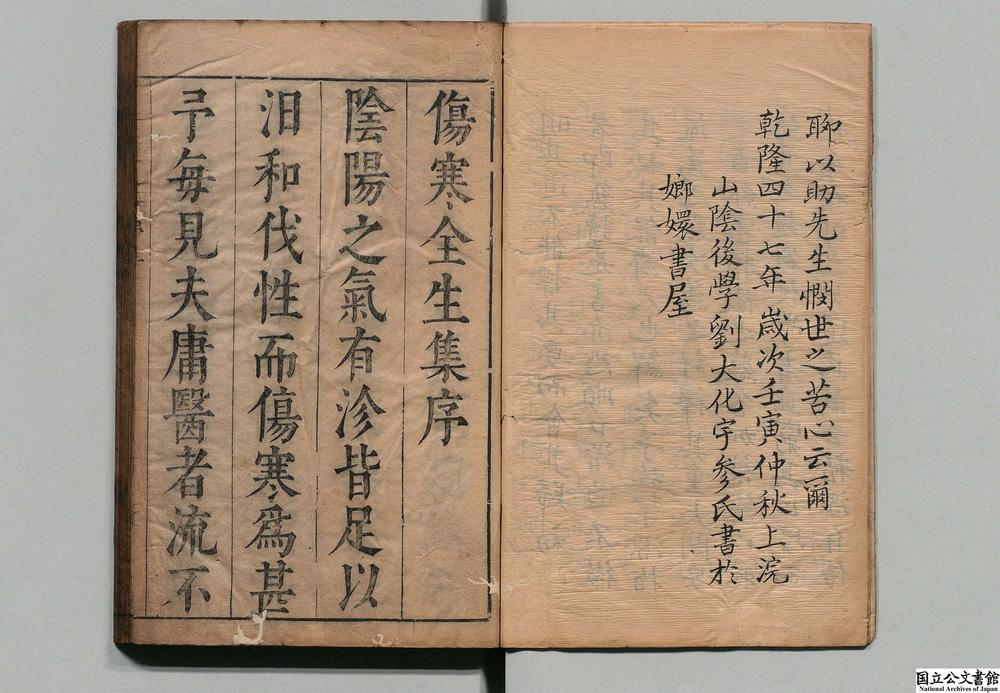 聊以助先生憫世之苦心云爾
乾隆四十七年歲次壬寅仲秋上浣
山陰後學劉大化宇參氏書於
嫏嬛書屋
傷寒全生集序
陰陽之氣有沴皆足以
汨和伐性而傷寒為甚
予每見夫庸醫者流不
国立公文書館
National Archives of Japan